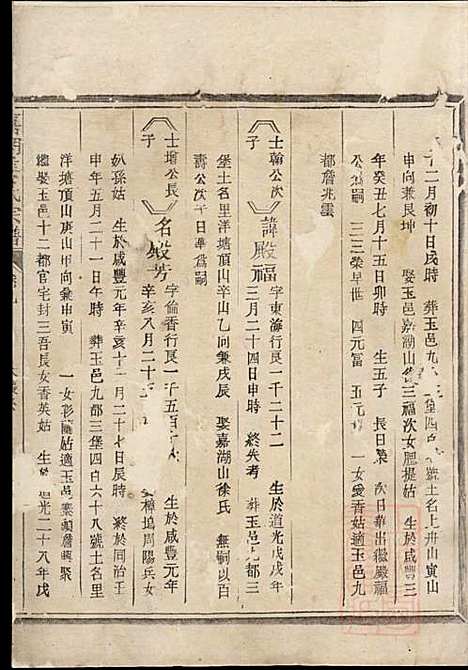 十二月初十日戌時 葬玉邑九 堡四 號土名上舟山寅山
申向兼艮坤 娶玉邑嘉湖山 三福次女肥提姑 生於咸豐三
年癸丑七月十五日卯時 生五子 長日榮 次日華出繼嚴福
公為嗣 三三榮早世 四元富 五元 一女愛香姑適玉邑九
都詹兆雲
士翰公次子 諱殿福 字東海行良一千二十二 生於道光戊戌年
三月二十四日申時 終失考 葬玉邑九都三
堡土名里洋塘頂山辛山乙向兼戌辰 娶嘉湖山徐氏 無嗣以百
壽公次子日華為嗣
士墙公長子 名殿芳 字倫香行良一千五百 生於咸豐元年
辛亥八月二十 樟塢周陽兵女
趴孫姑 生於咸豐元年辛亥十一月二十七日辰時 終於同治壬
申年五月二十日午時 葬玉邑九都三堡四百六十八號土名里
洋塘頂山庚山甲向兼申寅 一女彩 姑適玉邑 頼詹興聚
繼娶玉邑十二都官宅封三吾長女香英姑 生 道光二十八年戊
宗譜